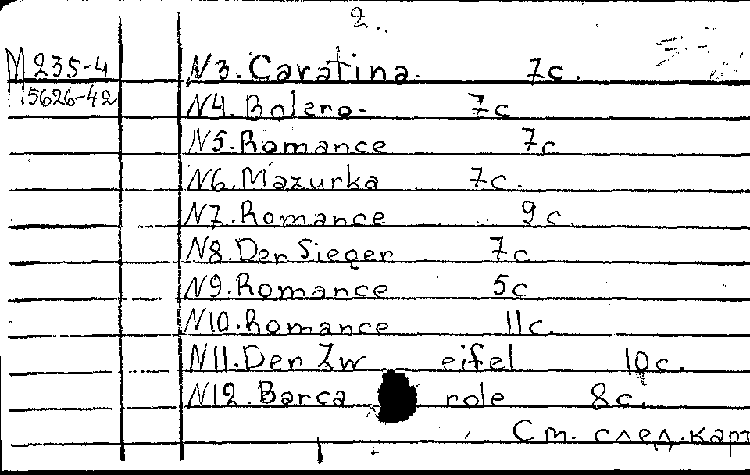 2.
М 235-4 N3. Cavatina. 7с.
15626-42 N4. Bolero- 7с
N5. Romance 7с
N6. Mazurka 7с.
N7. Romance 9с
N8. Der Sieger 7с
N9. Romance 5с
N10. Romance 11с.
N11. Der Zw eifel 10с.
N12. Barca role 8с.
См. след. кар